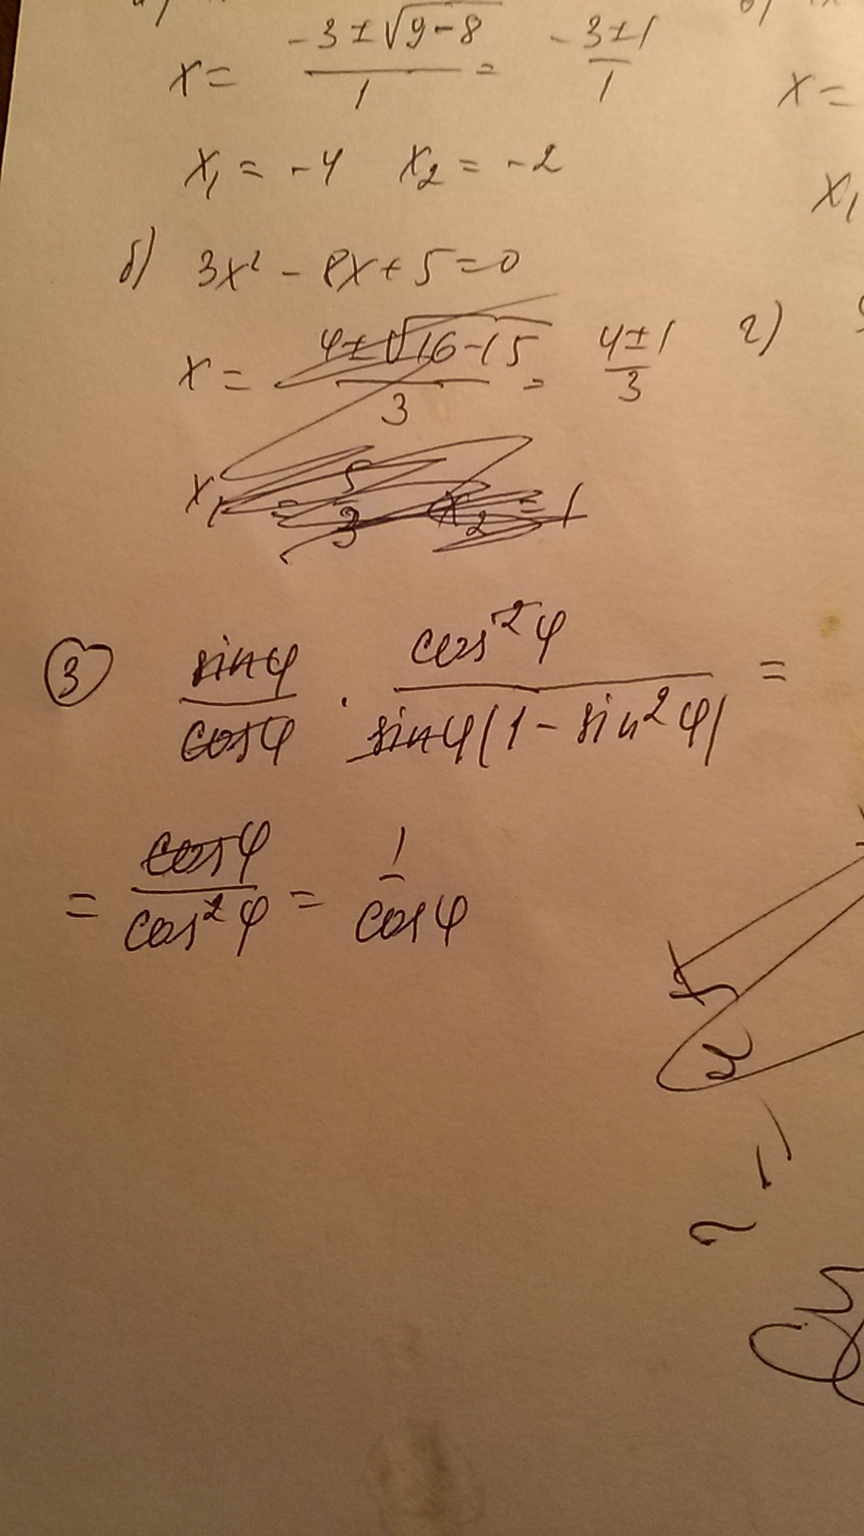 x = (-3 ± √(9-8))/1 = (-3±1)/1
x =
x₁ = -4 x₂ = -2
x₁
б) 3x² - 8x + 5 = 0
x = (4±√(16-15))/3 = (4±1)/3 г)
x₁ = 5/3 x₂ = 1
③ sinφ/cosφ · cos²φ/(sinφ(1 - sin²φ)) =
= cosφ/cos²φ = 1/cosφ